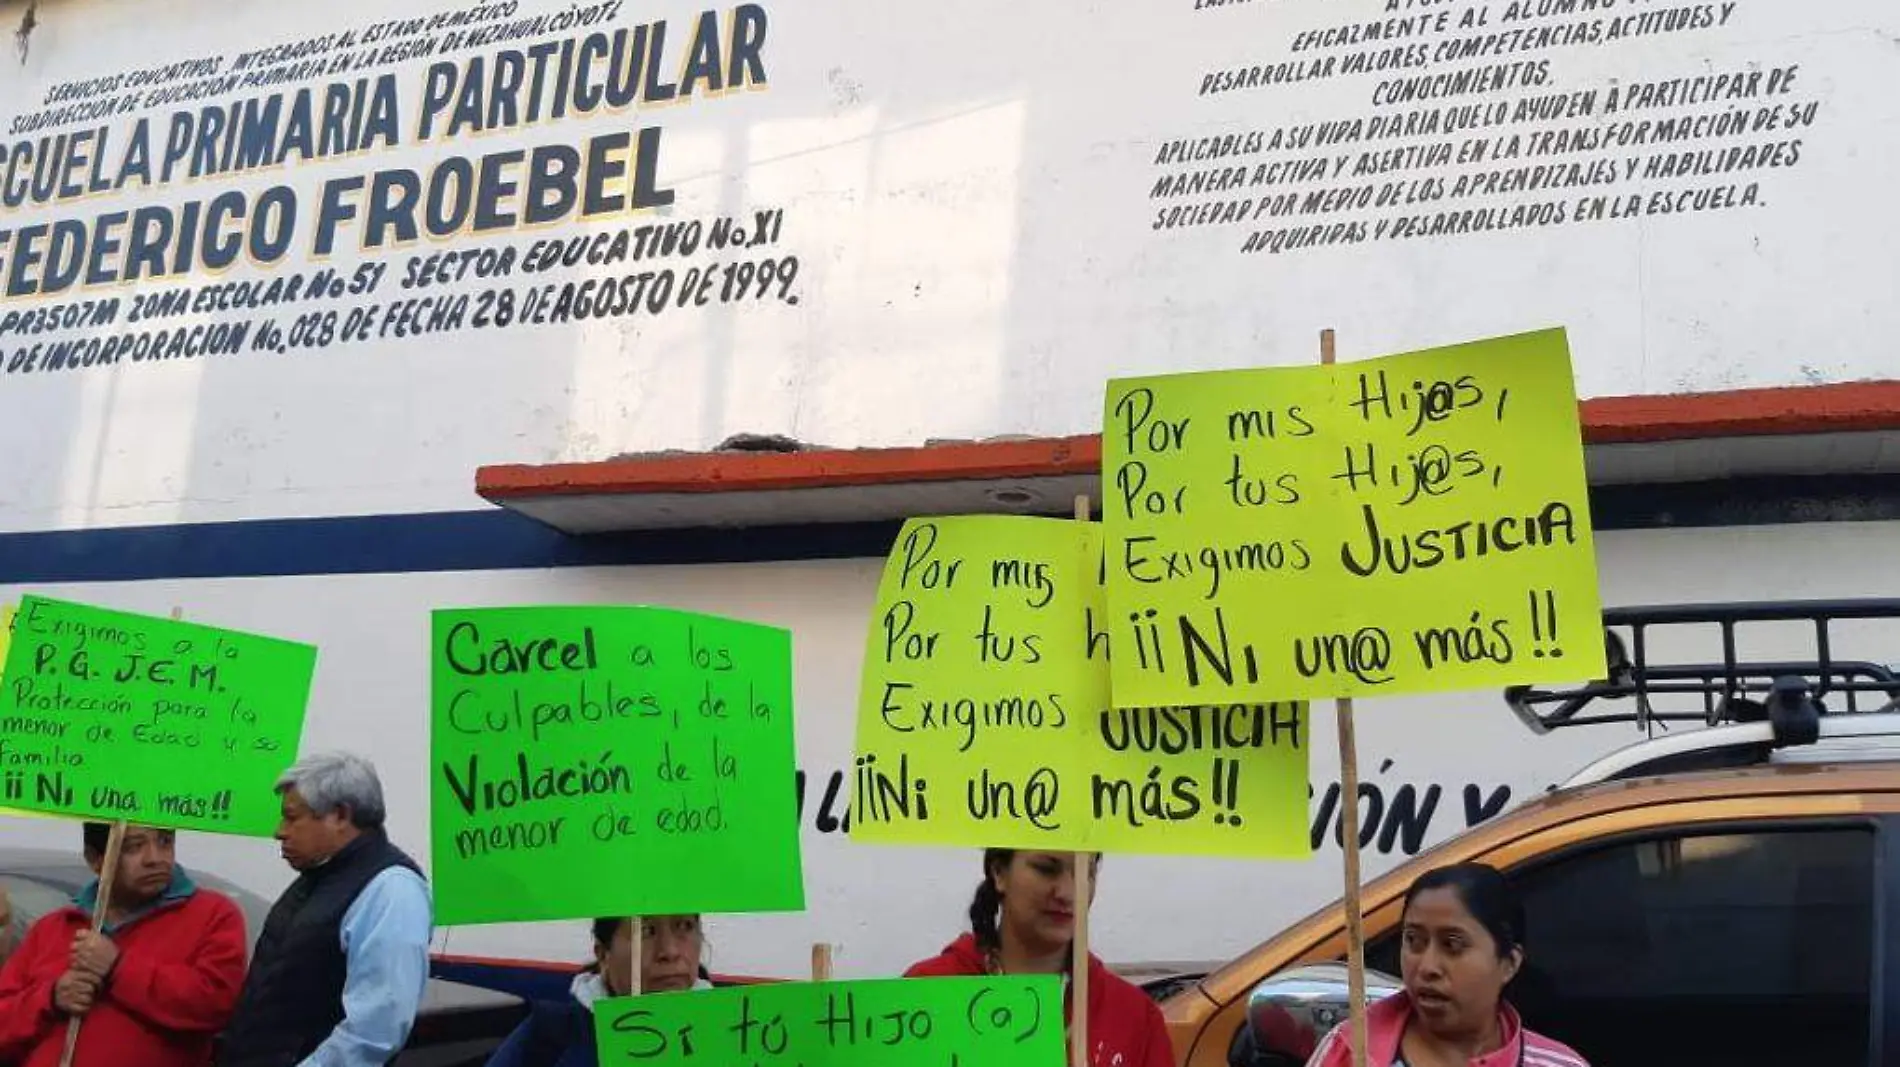 SERVICIOS EDUCATIVOS INTEGRADOS AL ESTADO DE MÉXICO
SUBDIRECCIÓN DE EDUCACIÓN PRIMARIA EN LA REGIÓN DE NEZAHUALCÓYOTL
SCUELA PRIMARIA PARTICULAR
FEDERICO FROEBEL
PR3507M ZONA ESCOLAR No 51 SECTOR EDUCATIVO No. XI
DE INCORPORACION No. 028 DE FECHA 28 DE AGOSTO DE 1999.
EFICAZMENTE AL ALUMNO
DESARROLLAR VALORES, COMPETENCIAS, ACTITUDES Y
CONOCIMIENTOS.
APLICABLES A SU VIDA DIARIA QUE LO AYUDEN A PARTICIPAR DE
MANERA ACTIVA Y ASERTIVA EN LA TRANSFORMACIÓN DE SU
SOCIEDAD POR MEDIO DE LOS APRENDIZAJES Y HABILIDADES
ADQUIRIDAS Y DESARROLLADOS EN LA ESCUELA.
Exigimos a la
P.G.J.E.M.
Protección para la
menor de Edad y su
familia
¡¡Ni una más!!
Carcel a los
Culpables, de la
Violación de la
menor de edad.
Por mis
Por tus h
Exigimos JUSTICIA
¡¡Ni un@ más!!
Por mis Hij@s,
Por tus Hij@s,
Exigimos JUSTICIA
¡¡Ni un@ más!!
IÓN Y
Si tú Hijo (a)